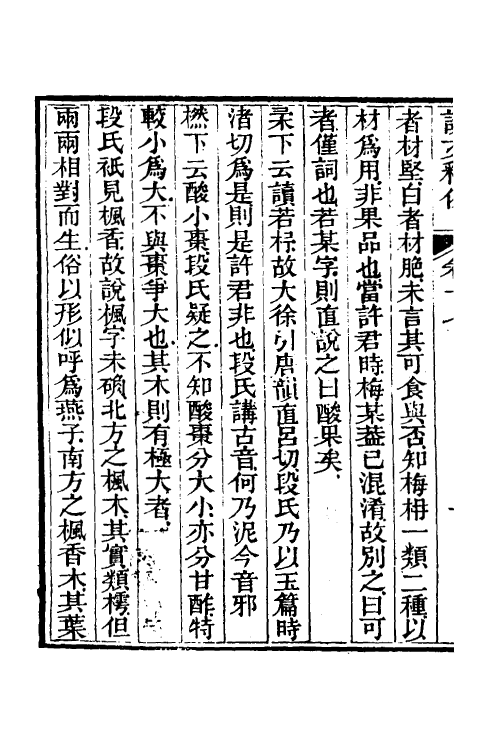 者材堅白者材脃未言其可食與否知梅柟一類二種以
材爲用非果品也當許君時梅某葢已混淆故別之曰可
者僅詞也若某字則直說之曰酸果矣
桼下云讀若枲故大徐引唐韻直呂切段氏乃以玉篇時
渚切爲是則是許君非也段氏講古音何乃泥今音邪
橪下云酸小棗段氏疑之不知酸棗分大小亦分甘酢特
較小爲大不與棗爭大也其木則有極大者
段氏祇見楓香故說楓字未碻北方之楓木其實類樗但
兩兩相對而生俗以形似呼爲燕子南方之楓香木其葉